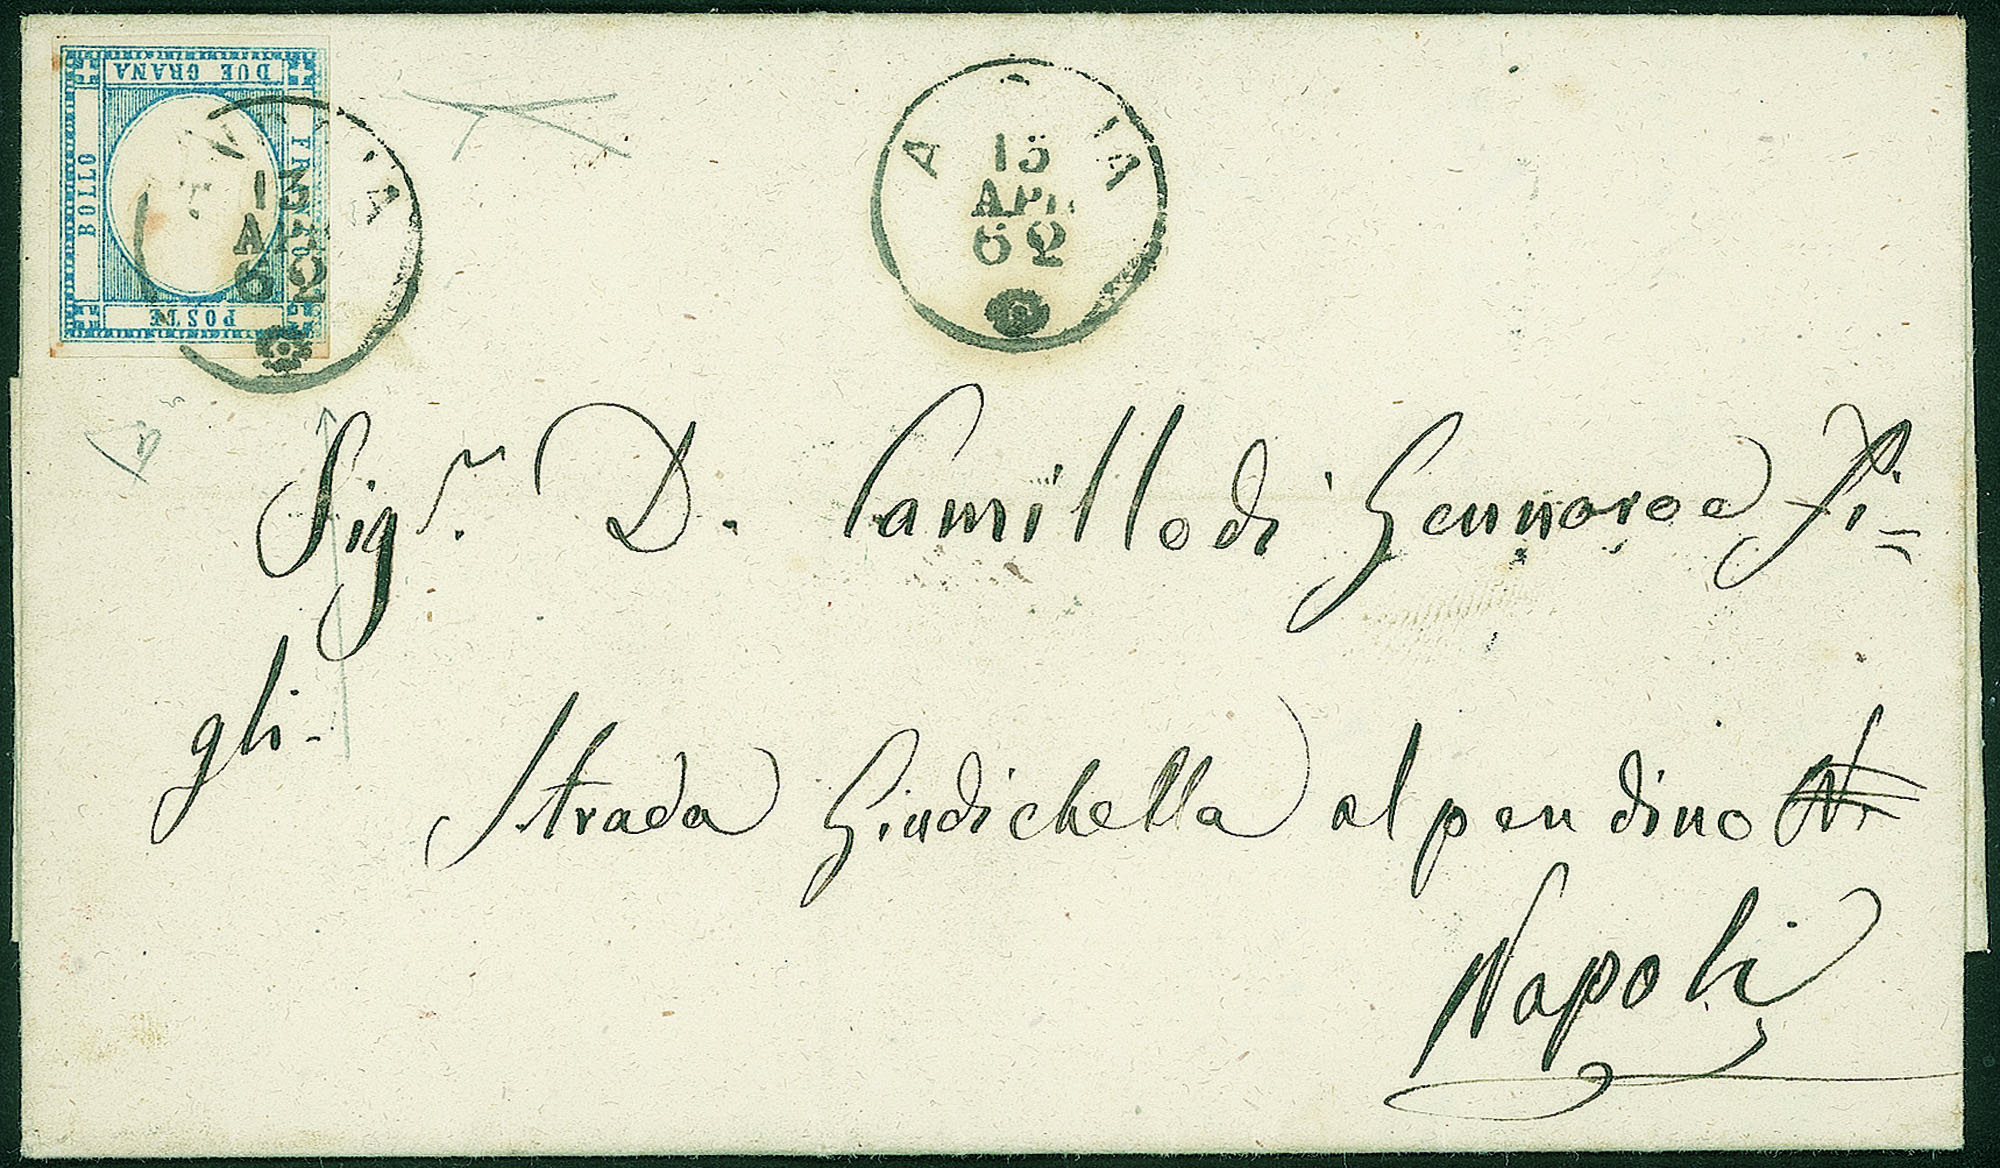 DUE GRANA
BOLLO
FRANCO
POSTE
13
62
A IA
15
APR
62
Sigr. D. Camillo di Gennaro e Fi=
gli-
Strada Giudichella al pendino N.
Napoli